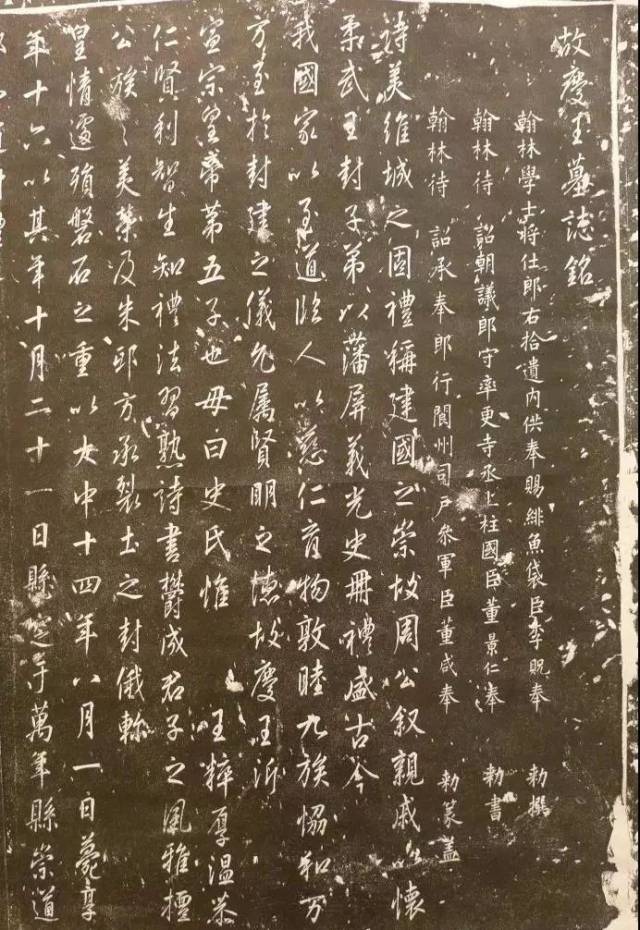 故慶王墓誌銘
翰林學士將仕郎右拾遺內供奉賜緋魚袋臣李貺奉 勅撰
翰林待 詔朝議郎守率更寺丞上柱國臣董景仁奉 勅書
翰林待 詔承奉郎行閬州司戶參軍臣董咸奉 勅篆蓋
詩美維城之固禮稱建國之崇故周公敘親戚以懷
柔武王封子弟以藩屏義光史冊禮盛古今
我國家以至道臨人以慈仁育物敦睦九族恊和万
方至於封建之儀允屬賢明之德故慶王沂
宣宗皇帝第五子也母曰史氏惟 王粹厚溫恭
仁賢利智生知禮法習熟詩書鬱成君子之風雅擅
公族之美榮及朱邸方承裂土之封俄軫
皇情遽殞磐石之重以大中十四年八月一日薨享
年十六以其年十月二十一日縣窆于萬年縣崇道